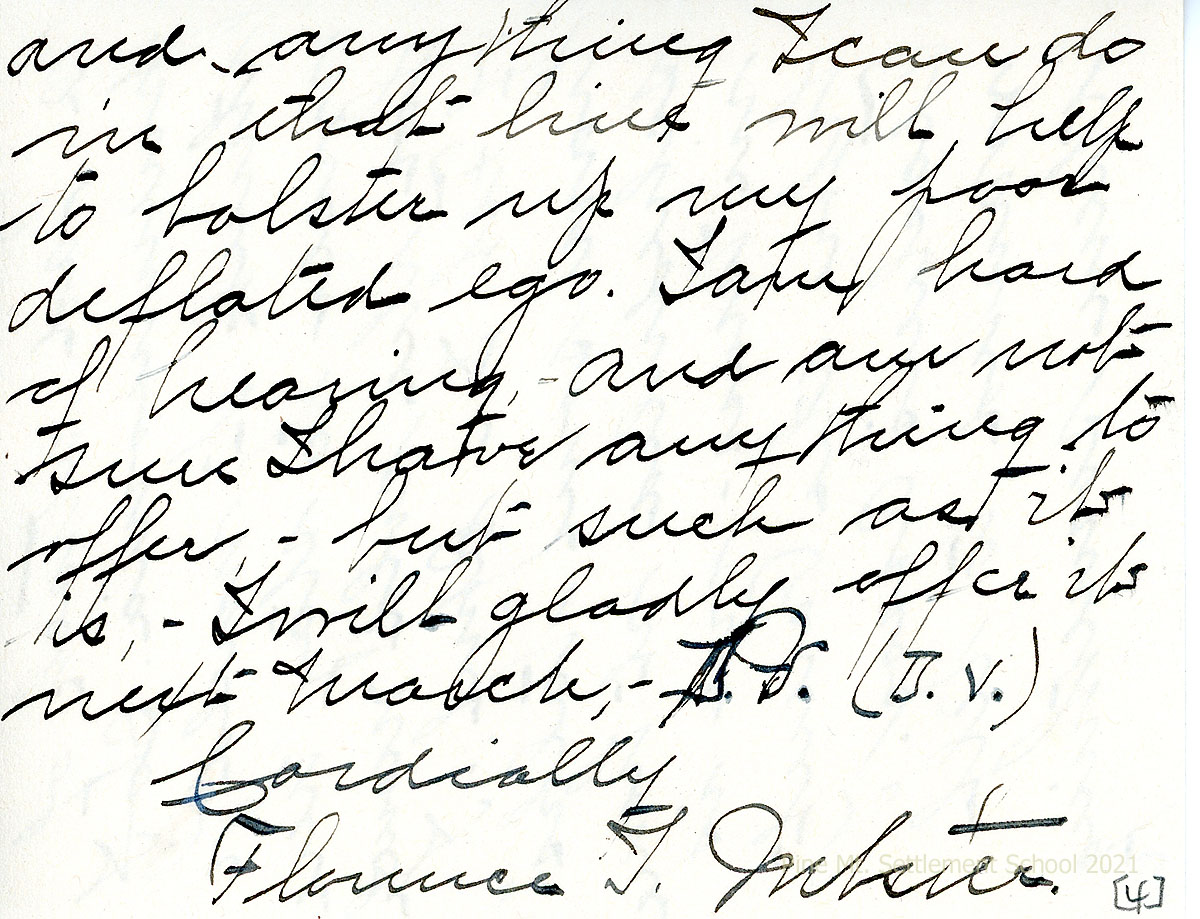 and anything I can do
in that line will help
to bolster up my poor
deflated ego. I am hard
of hearing, - and am not
sure I have anything to
offer, - but such as it
is, - I will gladly offer it
next March, - D.V. (D.V.)
Cordially
Florence T. Webster.
Pine Mt. Settlement School 2021
[4]